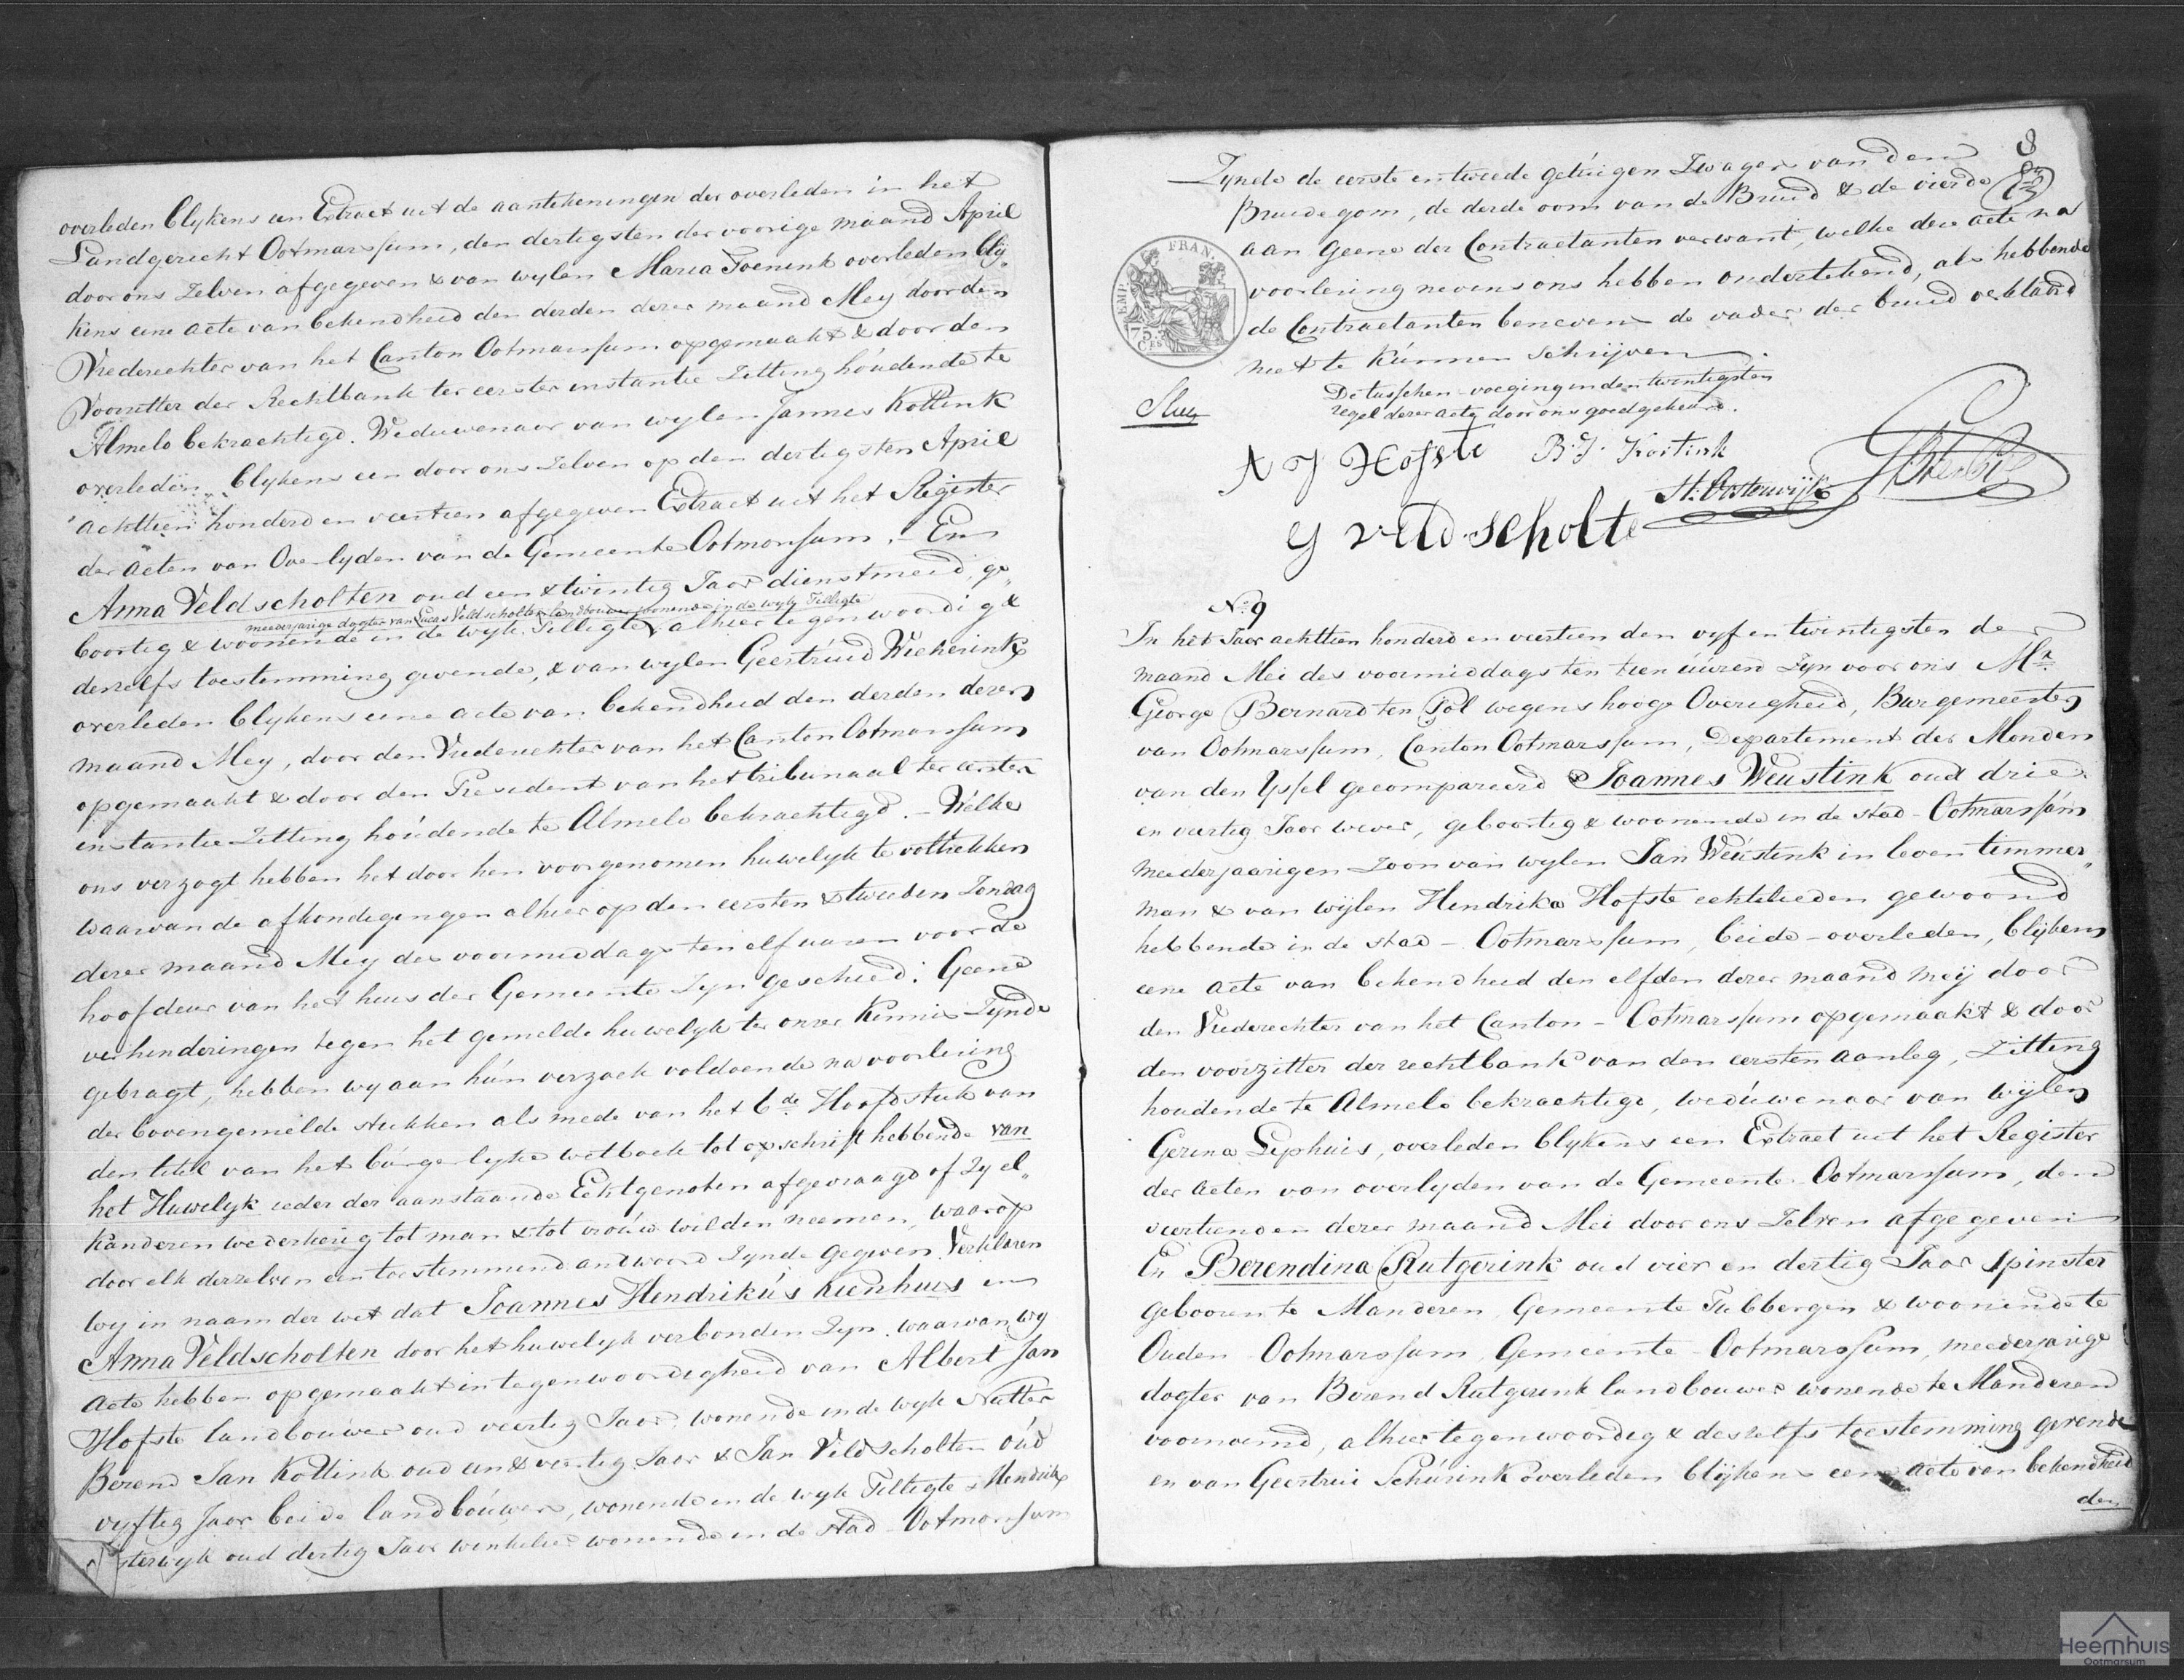 overleden blykens een Extract uit de aantekeningen der overleden in het
Landgericht Ootmarssum, den dertigsten der voorige maand April
door ons zelven afgegeven & van wylen Maria Toenink overleden bly„
kens eene acte van bekendheid den derden dezer maand Mey door den
Vrederechter van het Canton Ootmarssum opgemaakt & door den
Voorzitter der Rechtbank ter eerster instantie Zitting houdende te
Almelo bekrachtigd. Weduwenaar van wylen Jannes Kottink
overleden blykens een door ons zelven op den dertigsten April
achttien honderd en veertien afgegeven Extract uit het Register
der Acten van Overlyden van de Gemeente Ootmarssum. – En
Anna Veldscholten oud een & twintig Jaar dienstmeid, ge„
meederjarige dogter van Lucas Veldscholten landbouwer woonende in de wyk Tilligte
boortig & woonende in de wyk Tilligte alhier tegenwoordig &
deszelfs toestemming gevende, & van wylen Geertruid Wicherink
overleden blykens eene acte van bekendheid den derden dezer
maand Mey, door den Vrederechter van het Canton Ootmarssum
opgemaakt & door den President van het tribunaal ter eerster
instantie Zitting houdende te Almelo bekrachtigd. – Welke
ons verzogt hebben het door hen voorgenomen huwelyk te voltrekken
waarvan de afkondigingen alhier op den eersten & tweeden Zondag
dezer maand Mey des voormiddags ten elf uuren voor de
hoofdeur van het huis der Gemeente Zyn geschied. Geene
verhinderingen tegen het gemelde huwelyk ter onzer kennis Zynde
gebragt, hebben wy aan hun verzoek voldoende na voorlezing
der bovengemelde stukken als mede van het 6de Hoofdstuk van
den titel van het burgerlyke wetboek tot opschrift hebbende van
het Huwelyk ieder der aanstaande Echtgenoten afgevraagd of Zy el„
kanderen wederkerig tot man & tot vrouw wilden neemen, waarop
door elk derzelven een toestemmend andwoord Zynde gegeven. Verklaren
wy in naam der wet dat Joannes Hendrikus Kienhuis en
Anna Veldscholten door het huwelyk verbonden Zyn. waarvan wy
Acte hebben opgemaakt in tegenwoordigheid van Albert Jan
Hofste landbouwer oud veertig Jaar, wonende in de wyk Nutter
Berend Jan Kottink oud een & veertig Jaar & Jan Veldscholten oud
vyftig Jaar beide landbouwers, wonende in de wyk Tilligte & Hendrik
Oosterwyk oud dertig Jaar winkelier wonende in de stad Ootmarssum
8
Zynde de eerste en tweede getuigen Zwagers van den
Bruidegom, de derde oom van de Bruid & de vierde
aan geene der Contractanten verwant, welke deze acte na
voorlezing nevens ons hebben ondertekend, als hebbende
de Contractanten benevens de vader der bruid verklaard
niet te kunnen schrijven.
EMP. FRAN.
75.
CES
De tusschen voeging in den twintigsten
regel dezer acte door ons goedgekeurd.
A J Hofste
B: J: Kottink
H: Oosterwijk
G Veld scholte
No 9
In het Jaar achttien honderd en veertien den vyf en twintigsten der
maand Mei des voormiddags ten tien uuren Zyn voor ons Mr
George Bernard ten Pol wegens hooge Overigheid, Burgemeester
van Ootmarssum, Canton Ootmarssum, Departement der Monden
van den Yssel gecompareerd Joannes Weustink oud drie
en veertig Jaar wever, geboortig & woonende in de stad Ootmarssum
meederjaarigen zoon van wylen Jan Weustink in leven timmer„
man & van wijlen Hendrika Hofste echtelieden gewoond
hebbende in de stad – Ootmarssum, beide overleden, blijkens
eene acte van bekendheid den elfden dezer maand meij door
den Vrederechter van het Canton – Ootmarssum opgemaakt & door
den voorzitter der rechtbank van den eersten aanleg, Zitting
houdende te Almelo bekrachtigd, weduwenaar van wijlen
Gerina Lephuis, overleden blykens een Extract uit het Register
der acten van overlyden van de Gemeente Ootmarssum, den
veertienden dezer maand Mei door ons Zelven afgegeven
En Berendina Rutgerink oud vier en dertig Jaar Spinster
gebooren te Manderen, Gemeente Tubbergen & woonende te
Ouden Ootmarssum Gemeente Ootmarssum, meederjarige
dogter van Berend Rutgerink landbouwer wonende te Manderen
voornoemd, alhier tegenwoordig & deszelfs toestemming gevende
en van Geertrui Schurink overleden blijkens eene acte van bekendheid
den
Heemhuis
Ootmarsum